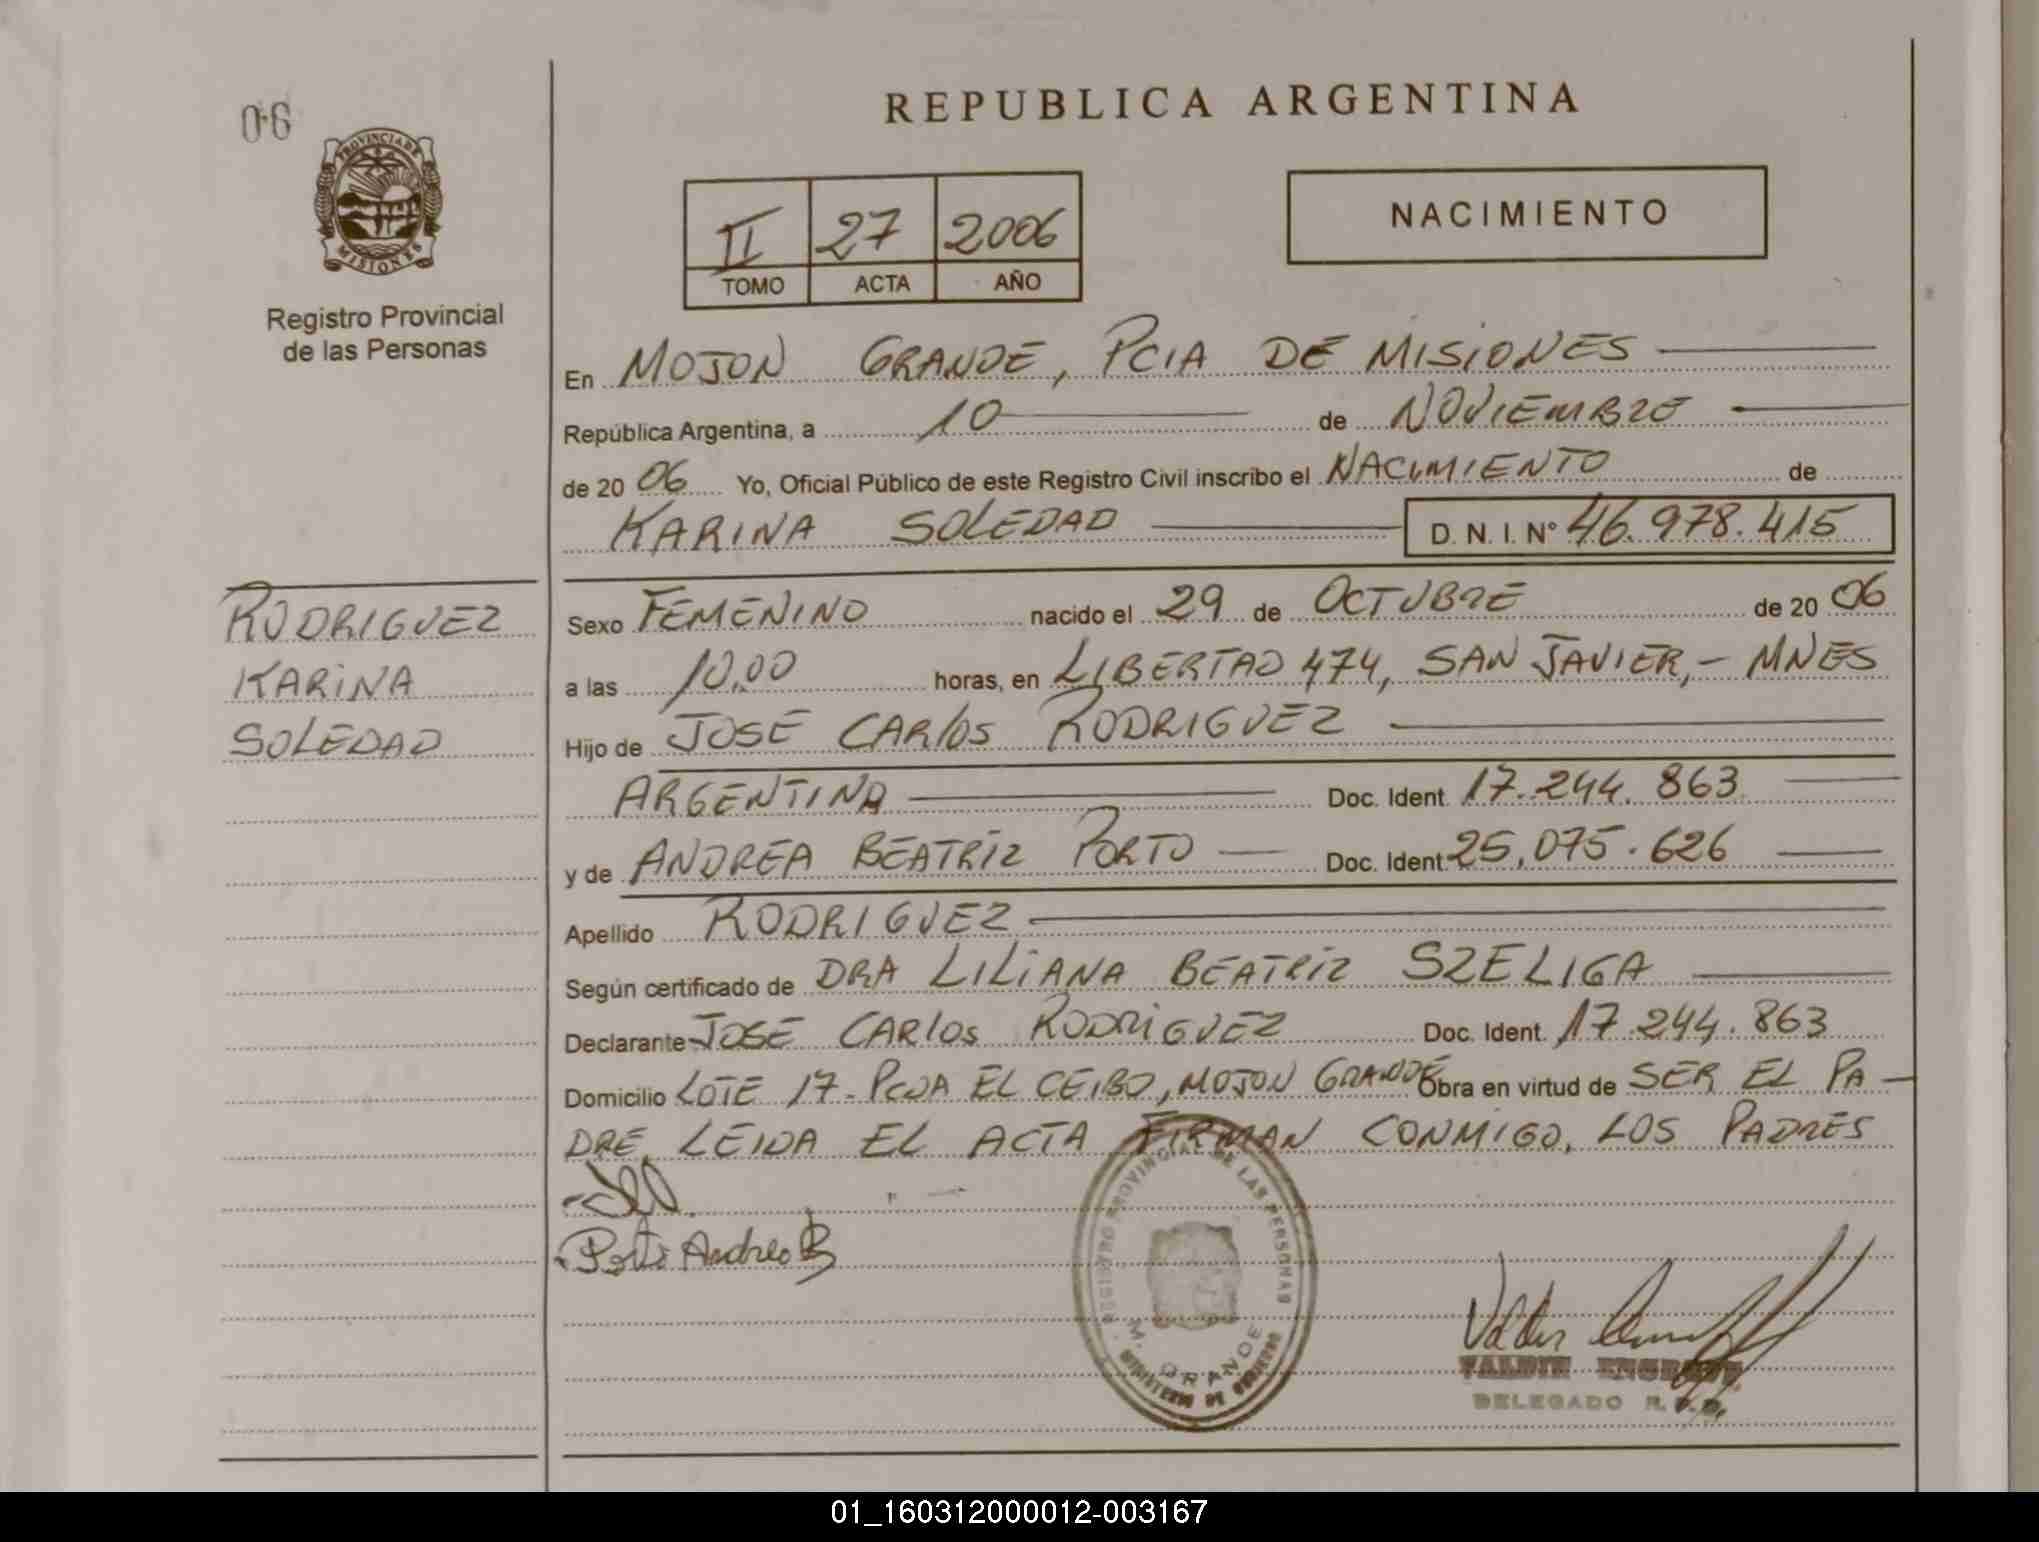 06
PROVINCIA DE
MISIONES
Registro Provincial
de las Personas
REPUBLICA ARGENTINA
II 27 2006
TOMO ACTA AÑO
NACIMIENTO
En MOJON GRANDE, PCIA DE MISIONES
República Argentina, a 10 de NOVIEMBRE
de 20 06 Yo, Oficial Público de este Registro Civil inscribo el NACIMIENTO de
KARINA SOLEDAD D. N. I. N° 46.978.415
RODRIGUEZ
KARINA
SOLEDAD
Sexo FEMENINO nacido el 29 de OCTUBRE de 20 06
a las 10,00 horas, en LIBERTAD 474, SAN JAVIER,- MNES
Hijo de JOSE CARlos RODRIGUEZ
ARGENTINA Doc. Ident. 17.244.863
y de ANDREA BEATRIZ PORTO Doc. Ident. 25,075.626
Apellido RODRIGUEZ
Según certificado de DRA LILIANA BEATRIZ SZELIGA
Declarante JOSE CARlos RODRIGUEZ Doc. Ident. 17.244.863
Domicilio LOTE 17- PCDA EL CEIBO, MOJON GRANDE Obra en virtud de SER EL PA-
DRE LEIDA EL ACTA FIRMAN CONMIGO, LOS PADRES
Porto Andrea B
REGISTRO PROVINCIAL DE LAS PERSONAS
M. GRANDE
MINISTERIO DE GOBIERNO
DELEGADO R.P.P.
01_160312000012-003167